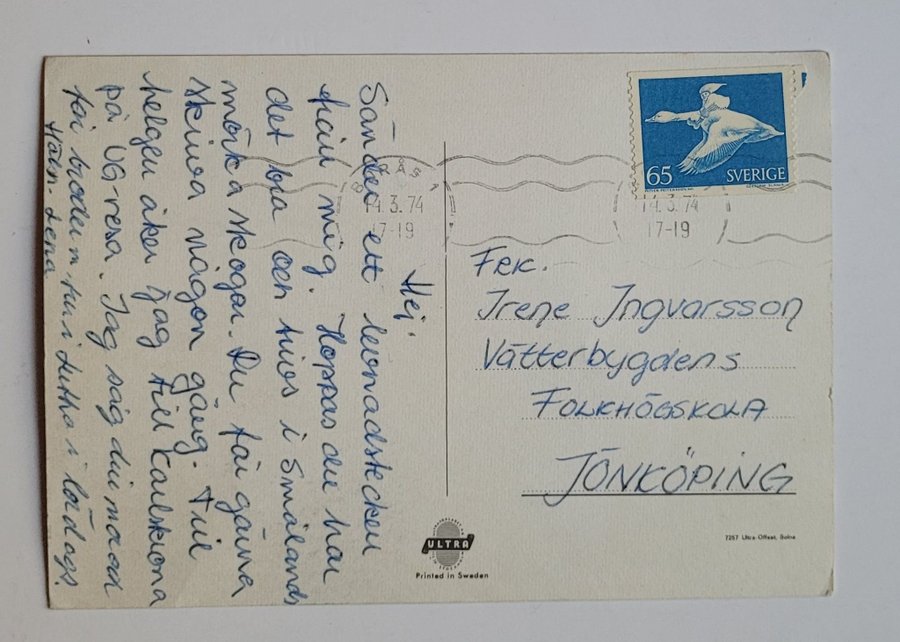 Hej!
Sänder ett levnadstecken
från mig. Hoppas du har
det bra och trivs i Smålands
mörka skogar. Du får gärna
skriva någon gång. Till
helgen åker jag till Karlskrona
på UG-resa. Jag såg din
i lördags.
Hälsn. Lena
BORÅS 1
14.3.74
17-19
14.3.74
17-19
65 SVERIGE
Frk.
Irene Ingvarsson
Vätterbygdens
FOLKHÖGSKOLA
JÖNKÖPING
ULTRA
Printed in Sweden
7257 Ultra Offset, Solna